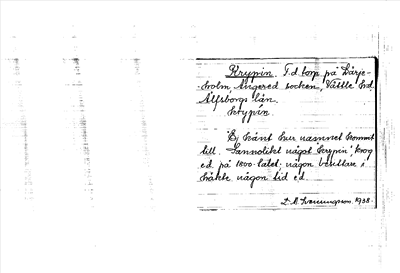 Krypin. F.d. torp på Lärje-
holm Angered socken, Vättle hd.
Älfsborgs län.
krypin.
Ej känt hur namnet kommit
till. Sannolikt något "krypin", krog
e.d. på 1800-talet; någon berättare
någon tid e.d.
1938.